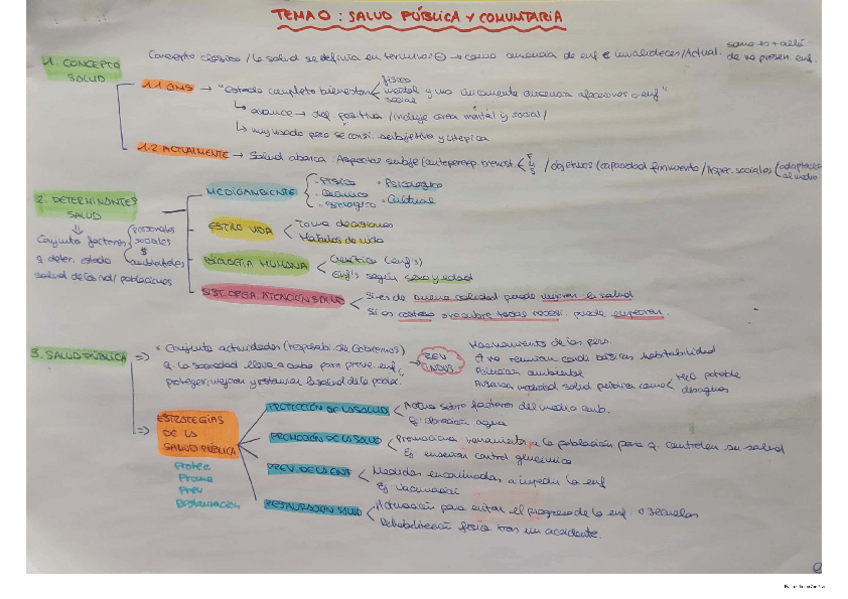 TEMA 0: SALUD PÚBLICA Y COMUNITARIA
1. CONCEPTO SALUD
Concepto clásico / la salud se definía en términos ⊖ → como ausencia de enf e invalideces / Actual.
1.1 OMS → "Estado completo bienestar
físico
mental y no únicamente ausencia afecciones o enf"
social
↳ avance → def. positiva / incluye área mental y social /
↳ muy usado pero se consi. subjetiva y utópica
1.2 ACTUALMENTE → Salud abarca: Aspectos subje
/ objetivos (capacidad
/ Aspec. sociales
2. DETERMINANTES SALUD
Conjunto factores
personales
sociales
ambientales
q deter. estado
salud de los ind / poblaciones
MEDIOAMBIENTE
- Físico
· Psicológico
- Químico
· Cultural
- Biológico
ESTILO VIDA
Toma decisiones
Hábitos de vida
BIOLOGÍA HUMANA
Genética (enf's)
Enf's según sexo y edad
SIST. ORGA. ATENCIÓN SALUD
Si es de buena calidad puede mejorar la salud
Si es costoso o no cubre todas necesi. puede empeorar.
3. SALUD PÚBLICA ⇒
"Conjunto actividades (responsabi. de Gobiernos)
q la sociedad lleva a cabo para preve. enf,
proteger, mejorar y restaurar la salud de la poblac.
REV INDUS
Hacinamiento de las pers.
q no reunían condi básicas habitabilidad
ambiental
salud pública como
H2O potable
desagües
⇒ ESTRATEGIAS
DE LA
SALUD PÚBLICA
Protec
Promo
Prev
Restauración
PROTECCIÓN DE LA SALUD
Actúa sobre factores del medio amb.
Ej: cloración agua
PROMOCIÓN DE LA SALUD
Proporciona herramientas a la población para q. controlen su salud
Ej enseñar control glucémico
PREV. DE LA ENF
Medidas encaminadas a impedir la enf
Ej vacunación
RESTAURACIÓN SALUD
Actuación para evitar el progreso de la enf. o secuelas
Rehabilitación física tras un accidente.